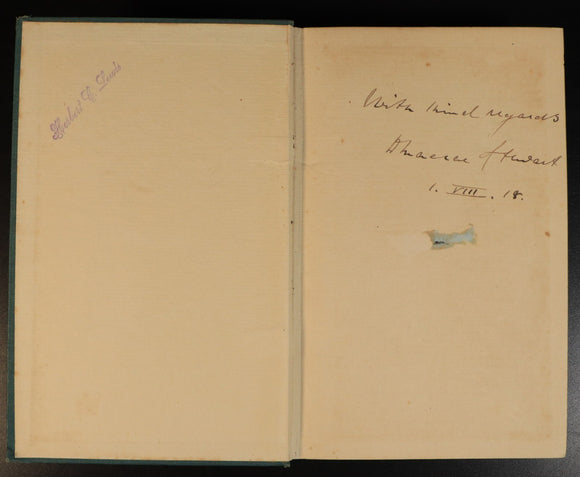 Herbert C. Lewis
With kind regards
Stewart
1. VIII. 18.